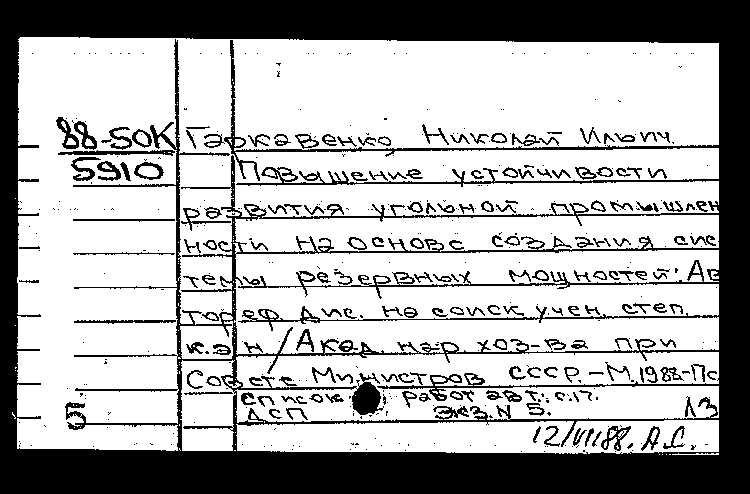 88-50К Гаркавенко, Николай Ильич.
5910 Повышение устойчивости
развития угольной промышлен
ности на основе создания сис
темы резервных мощностей: Ав
тореф. дис. на соиск. учен. степ.
к.э.н / Акад. нар. хоз-ва при
Совете Министров СССР.-М, 1988-
список работ авт.: с.17.
ДСП Экз. N 5.
12/VII 88. А.С.